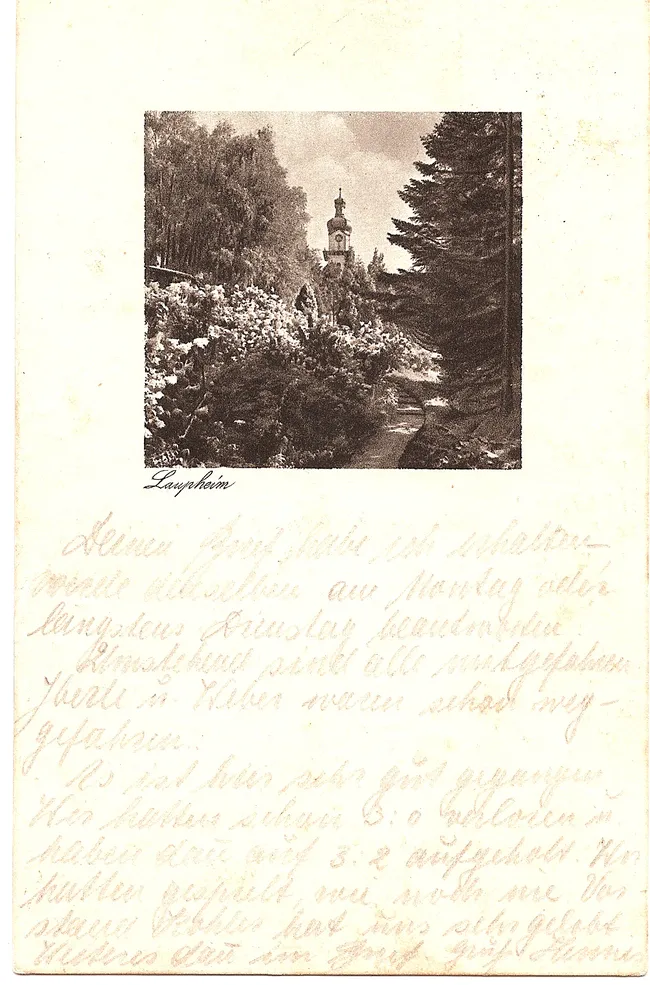 Laupheim
Deinen Brief habe ich erhalten –
werde denselben am Montag oder
längstens Dienstag beantworten.
Umstehend sind alle mitgefahren
Iberle u. Weber waren schon weg-
gefahren.
Es ist hier sehr gut gegangen
Wir hatten schon 3:0 verloren u.
haben dau auf 3:2 aufgeholt. Wir
hatten gespielt, wie noch nie Vor-
stand Kohler hat uns sehr gelobt
Weiteres dau im Brief Gruß